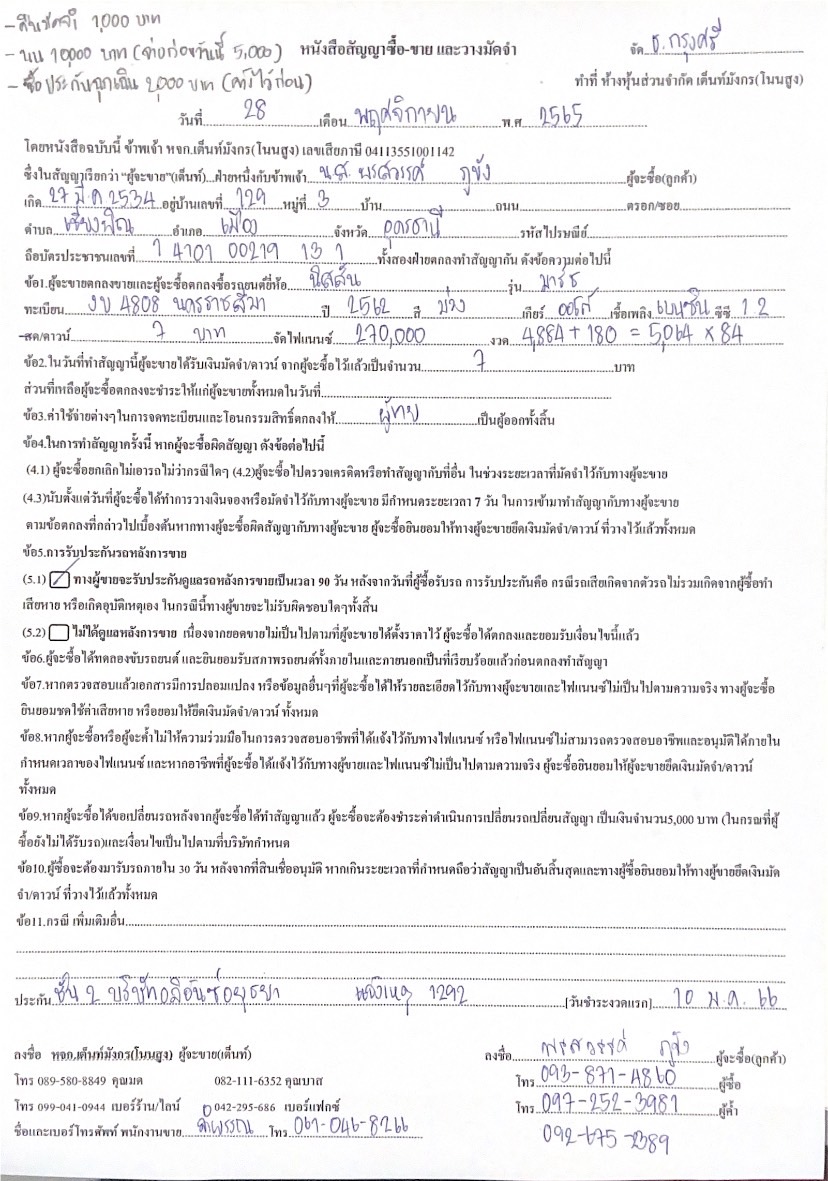 - คืนมัดจำ 1,000 บาท
- นน 10000 บาท (จ่ายก่อนวันนี้ 5,000)
- ซื้อประกันฉุกเฉิน 2,000 บาท (ค้างไว้ก่อน)
หนังสือสัญญาซื้อ-ขาย และวางมัดจำ
จัด ธ.กรุงศรี
ทำที่ ห้างหุ้นส่วนจำกัด เต็นท์มังกร(โนนสูง)
วันที่ 28 เดือน พฤศจิกายน พ.ศ 2565
โดยหนังสือฉบับนี้ ข้าพเจ้า หจก.เต็นท์มังกร(โนนสูง) เลขเสียภาษี 04113551001142
ซึ่งในสัญญาเรียกว่า "ผู้จะขาย"(เต็นท์)...ฝ่ายหนึ่งกับข้าพเจ้า น.ส. พรสวรรค์ ภูขัง ผู้จะซื้อ(ลูกค้า)
เกิด 27 มี.ค 2534 อยู่บ้านเลขที่ 129 หมู่ที่ 3 บ้าน ถนน ตรอก/ซอย
ตำบล เชียงพิณ อำเภอ เมือง จังหวัด อุดรธานี รหัสไปรษณีย์
ถือบัตรประชาชนเลขที่ 1 4101 00219 13 1 ทั้งสองฝ่ายตกลงทำสัญญากัน ดังข้อความต่อไปนี้
ข้อ1.ผู้จะขายตกลงขายและผู้จะซื้อตกลงซื้อรถยนต์ยี่ห้อ นิสสัน รุ่น มาร์ช
ทะเบียน งบ 4808 นครราชสีมา ปี 2562 สี ม่วง เกียร์ ออโต้ เชื้อเพลิง เบนซิน ซีซี 1.2
สด/ดาวน์ 7 บาท จัดไฟแนนซ์ 270,000 งวด 4,884 + 180 = 5,064 x 84
ข้อ2.ในวันที่ทำสัญญานี้ผู้จะขายได้รับเงินมัดจำ/ดาวน์ จากผู้จะซื้อไว้แล้วเป็นจำนวน 7 บาท
ส่วนที่เหลือผู้จะซื้อตกลงจะชำระให้แก่ผู้จะขายทั้งหมดในวันที่
ข้อ3.ค่าใช้จ่ายต่างๆในการจดทะเบียนและโอนกรรมสิทธิ์ตกลงให้ ผู้ขาย เป็นผู้ออกทั้งสิ้น
ข้อ4.ในการทำสัญญาครั้งนี้ หากผู้จะซื้อผิดสัญญา ดังข้อต่อไปนี้
(4.1) ผู้จะซื้อยกเลิกไม่เอารถไม่ว่ากรณีใดๆ (4.2)ผู้จะซื้อไปตรวจเครดิตหรือทำสัญญากับที่อื่น ในช่วงระยะเวลาที่มัดจำไว้กับทางผู้จะขาย
(4.3)นับตั้งแต่วันที่ผู้จะซื้อได้ทำการวางเงินจองหรือมัดจำไว้กับทางผู้จะขาย มีกำหนดระยะเวลา 7 วัน ในการเข้ามาทำสัญญากับทางผู้จะขาย
ตามข้อตกลงที่กล่าวไปเบื้องต้นหากทางผู้จะซื้อผิดสัญญากับทางผู้จะขาย ผู้จะซื้อยินยอมให้ทางผู้จะขายยึดเงินมัดจำ/ดาวน์ ที่วางไว้แล้วทั้งหมด
ข้อ5.การรับประกันรถหลังการขาย
(5.1) ทางผู้ขายจะรับประกันดูแลรถหลังการขายเป็นเวลา 90 วัน หลังจากวันที่ผู้ซื้อรับรถ การรับประกันคือ กรณีรถเสียเกิดจากตัวรถไม่รวมเกิดจากผู้ซื้อทำ
เสียหาย หรือเกิดอุบัติเหตุเอง ในกรณีนี้ทางผู้ขายจะไม่รับผิดชอบใดๆทั้งสิ้น
(5.2) ไม่ได้ดูแลหลังการขาย เนื่องจากยอดขายไม่เป็นไปตามที่ผู้จะขายได้ตั้งราคาไว้ ผู้จะซื้อได้ตกลงและยอมรับเงื่อนไขนี้แล้ว
ข้อ6.ผู้จะซื้อได้ทดลองขับรถยนต์ และยินยอมรับสภาพรถยนต์ทั้งภายในและภายนอกเป็นที่เรียบร้อยแล้วก่อนตกลงทำสัญญา
ข้อ7.หากตรวจสอบแล้วเอกสารมีการปลอมแปลง หรือข้อมูลอื่นๆที่ผู้จะซื้อได้ให้รายละเอียดไว้กับทางผู้จะขายและไฟแนนซ์ไม่เป็นไปตามความจริง ทางผู้จะซื้อ
ยินยอมชดใช้ค่าเสียหาย หรือยอมให้ยึดเงินมัดจำ/ดาวน์ ทั้งหมด
ข้อ8.หากผู้จะซื้อหรือผู้จะค้ำไม่ให้ความร่วมมือในการตรวจสอบอาชีพที่ได้แจ้งไว้กับทางไฟแนนซ์ หรือไฟแนนซ์ไม่สามารถตรวจสอบอาชีพและอนุมัติได้ภายใน
กำหนดเวลาของไฟแนนซ์ และหากอาชีพที่ผู้จะซื้อได้แจ้งไว้กับทางผู้ขายและไฟแนนซ์ไม่เป็นไปตามความจริง ผู้จะซื้อยินยอมให้ผู้จะขายยึดเงินมัดจำ/ดาวน์
ทั้งหมด
ข้อ9.หากผู้จะซื้อได้ขอเปลี่ยนรถหลังจากผู้จะซื้อได้ทำสัญญาแล้ว ผู้จะซื้อจะต้องชำระค่าดำเนินการเปลี่ยนรถเปลี่ยนสัญญา เป็นเงินจำนวน5,000 บาท (ในกรณที่ผู้
ซื้อยังไม่ได้รับรถ)และเงื่อนไขเป็นไปตามที่บริษัทกำหนด
ข้อ10.ผู้ซื้อจะต้องมารับรถภายใน 30 วัน หลังจากที่สินเชื่ออนุมัติ หากเกินระยะเวลาที่กำหนดถือว่าสัญญาเป็นอันสิ้นสุดและทางผู้ซื้อยินยอมให้ทางผู้ขายยึดเงินมัด
จำ/ดาวน์ ที่วางไว้แล้วทั้งหมด
ข้อ11.กรณี เพิ่มเติมอื่น
ประกัน ชั้น 2 บริษัทอลิอันซ์อยุธยา แจ้งเหตุ 1292 [วันชำระงวดแรก] 10 ม.ค. 66
ลงชื่อ หจก.เต็นท์มังกร(โนนสูง) ผู้จะขาย(เต็นท์)
ลงชื่อ พรสวรรค์ ภูขัง ผู้จะซื้อ(ลูกค้า)
โทร 089-580-8849 คุณมด 082-111-6352 คุณบาส
โทร 093-871-4860 ผู้ซื้อ
โทร 099-041-0944 เบอร์ร้าน/ไลน์ 042-295-686 เบอร์แฟกซ์
โทร 097-252-3981 ผู้ค้ำ
ชื่อและเบอร์โทรศัพท์ พนักงานขาย โทร 061-046-8266
092-675-2389